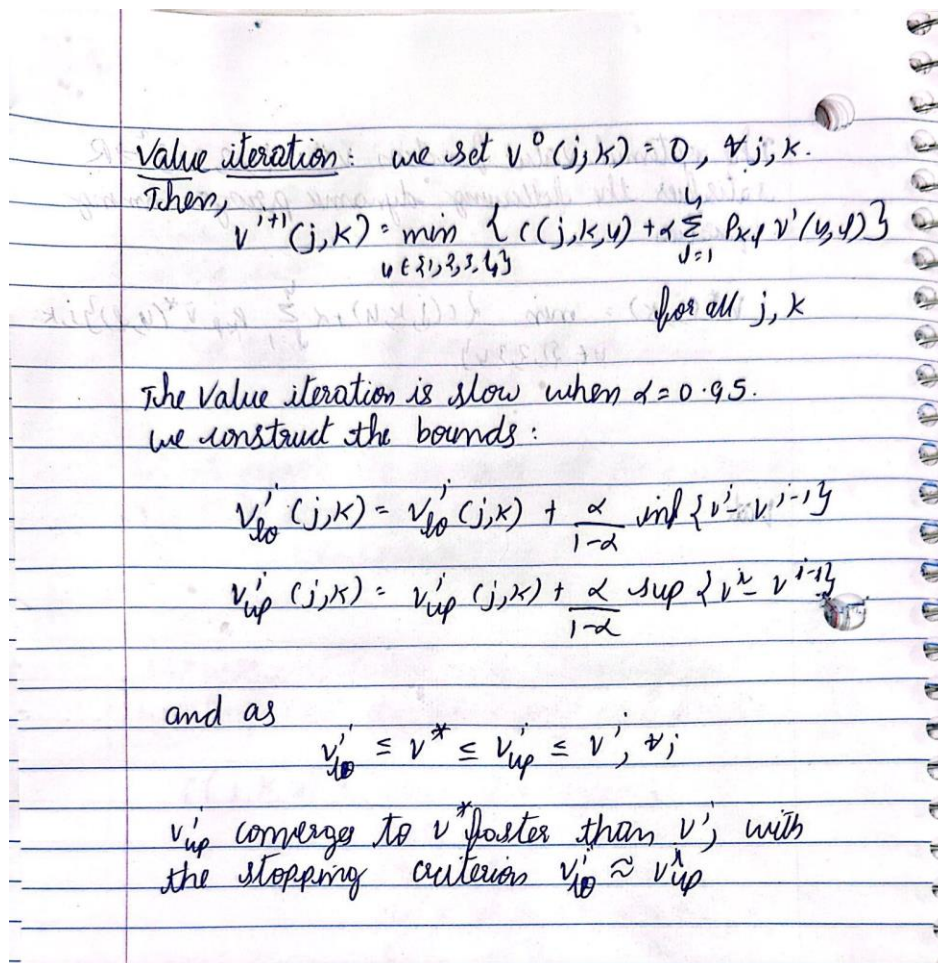 Value iteration: we set v⁰(j,k) = 0, ∀ j,k.
Then,
vⁱ⁺¹(j,k) = min { c(j,k,u) + α Σ Pₖₗ vⁱ(u,l) }
u ∈ {1,2,3,4} l=1 4
for all j, k
The Value iteration is slow when α = 0.95.
we construct the bounds:
vⁱ_lo (j,k) = vⁱ_lo (j,k) + α/(1-α) inf {vⁱ - vⁱ⁻¹}
vⁱ_up (j,k) = vⁱ_up (j,k) + α/(1-α) sup {vⁱ - vⁱ⁻¹}
and as
vⁱ_lo ≤ v* ≤ vⁱ_up ≤ vⁱ, ∀i
vⁱ_up converges to v* faster than vⁱ, with
the stopping criterion vⁱ_lo ≈ vⁱ_up